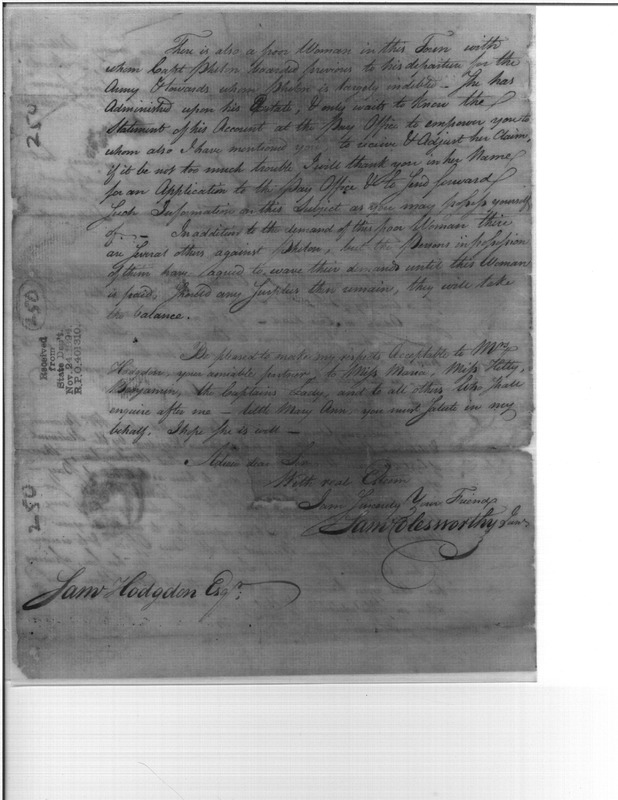 There is also a poor Woman in this Town with
whom Capt Phelon boarded previous to his departure for the
Army & towards whom Phelon is largely indebted - She has
Administed upon his Estate, & only waits to know the
Statement of his Account at the Pay Office to empower you to
whom also I have mentioned you, to receive & Adjust her Claim,
if it be not too much trouble I will thank you in her Name
for an Application to the Pay Office & to send forward
such Information on this Subject as you may possess yourself
of - In addition to the demand of this poor Woman there
are several others against Phelon, but the Persons in possession
of them have agreed to wave their demands until this Woman
is paid, should any surplus then remain, they will take
the balance.
Be pleased to make my respects acceptable to Mrs
Hodgdon your amiable partner, to Miss Maria, Miss Hetty,
Benjamin, the Captains Lady, and to all others who shall
enquire after me - little Mary Ann, you must salute in my
behalf. I hope she is well -
Adieu dear Sir
With real Esteem
I am Your Friend
Sam Holesworthy Junr
Saml Hodgdon Esqr.
250
250
250
Received
from
State Dep't.
Nov. 24 1894.
R.P.O. 401310.